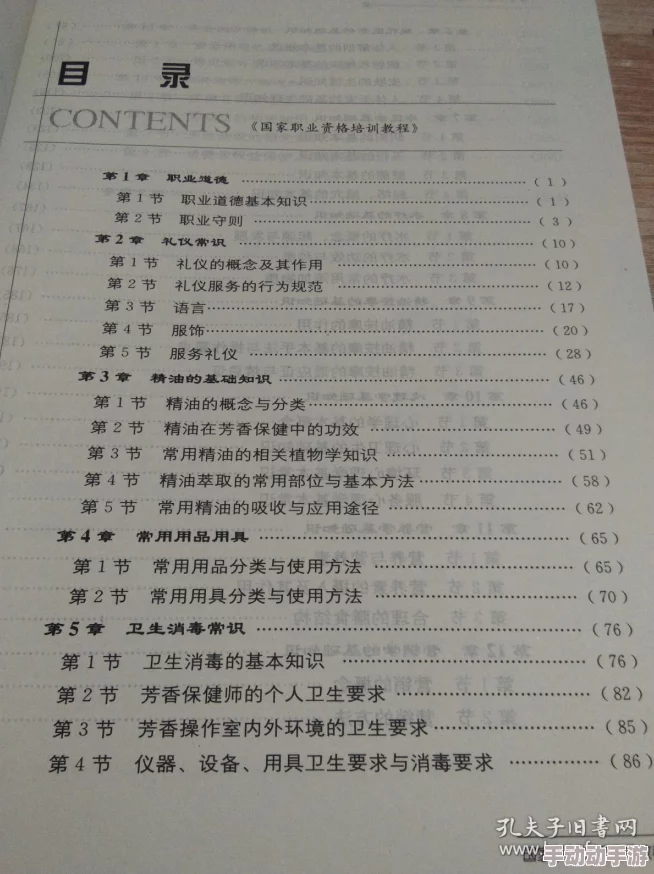 目 录
CONTENTS 《国家职业资格培训教程》
第1章 职业道德 ……(1)
第1节 职业道德基本知识 ……(1)
第2节 职业守则 ……(3)
第2章 礼仪常识 ……(10)
第1节 礼仪的概念及其作用 ……(10)
第2节 礼仪服务的行为规范 ……(12)
第3节 语言 ……(17)
第4节 服饰 ……(20)
第5节 服务礼仪 ……(28)
第3章 精油的基础知识 ……(46)
第1节 精油的概念与分类 ……(46)
第2节 精油在芳香保健中的功效 ……(49)
第3节 常用精油的相关植物学知识 ……(51)
第4节 精油萃取的常用部位与基本方法 ……(58)
第5节 常用精油的吸收与应用途径 ……(62)
第4章 常用用品用具 ……(65)
第1节 常用用品分类与使用方法 ……(65)
第2节 常用用具分类与使用方法 ……(70)
第5章 卫生消毒常识 ……(76)
第1节 卫生消毒的基本知识 ……(76)
第2节 芳香保健师的个人卫生要求 ……(82)
第3节 芳香操作室内外环境的卫生要求 ……(85)
第4节 仪器、设备、用具卫生要求与消毒要求 ……(86)
孔夫子旧书网
手动动手游